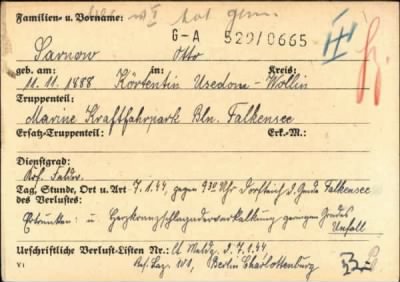 Familien- u. Vorname: tot gem.
G-A 529/0665
III
Sarnow Otto
geb. am: in: Kreis:
11.11.1888 Körtentin Usedom-Wollin
Truppenteil:
Marine Kraftfahrpark Bln. Falkensee
Ersatz-Truppenteil: Erk.-M.:
Dienstgrad:
Tag, Stunde, Ort u. Art 7.1.44, gegen 9 Uhr Dorfteich d. Gmde Falkensee
des Verlustes:
Ertrunken u. Herzkranzschlagaderverkalkung geringen Grades
Unfall
Urschriftliche Verlust-Listen Nr.: U Meldg. d. 7.1.44
Res. Laz. 101, Berlin Charlottenburg
VI